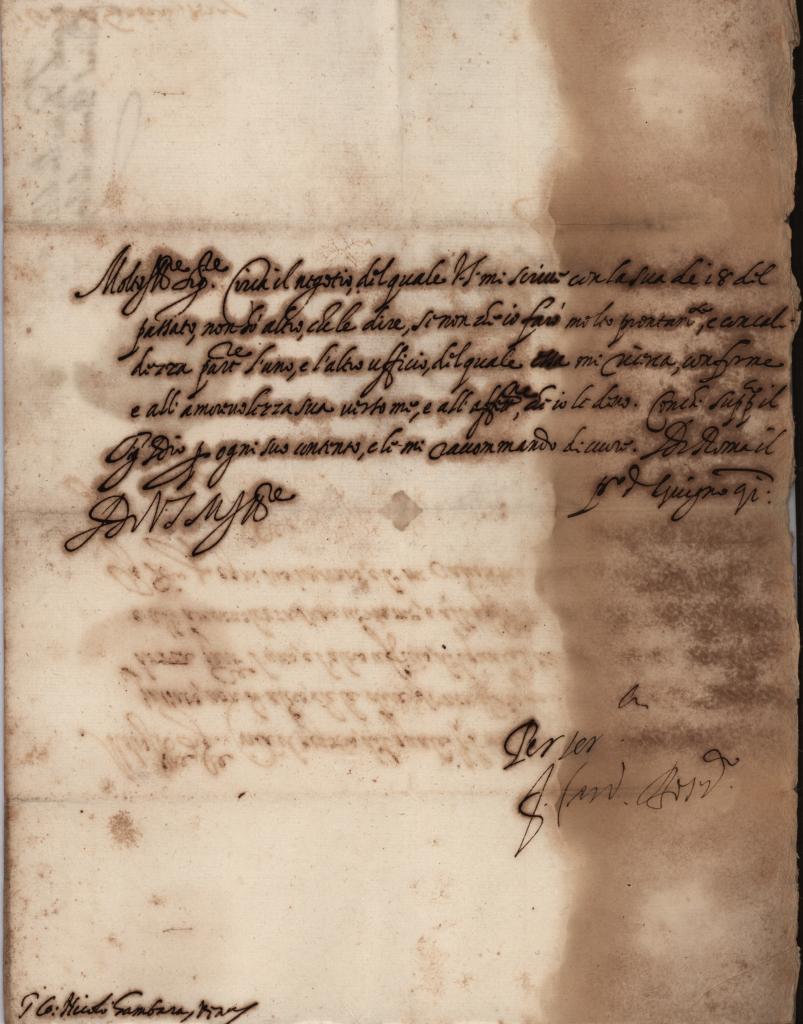 Molto Ill.re Sig.re Circa il negotio, del quale V.S. mi scrive con la sua de i 8 del
passato, non so altro, che le dire, se non che io farò molto prontam.te, e con cal-
dezza par.te l'uno, e l'altro ufficio, del quale mi, conforme
e all'amorevolezza sua verso me, e all'aff.ne, che io le devo. Con che il
Sig. Dio p ogni suo contento, e le mi raccommando di cuore. Di Roma il
p.o d Giugno 91.
Di V.S. M. Ill.re
Per ser
Card.
Nicolò Gambara,